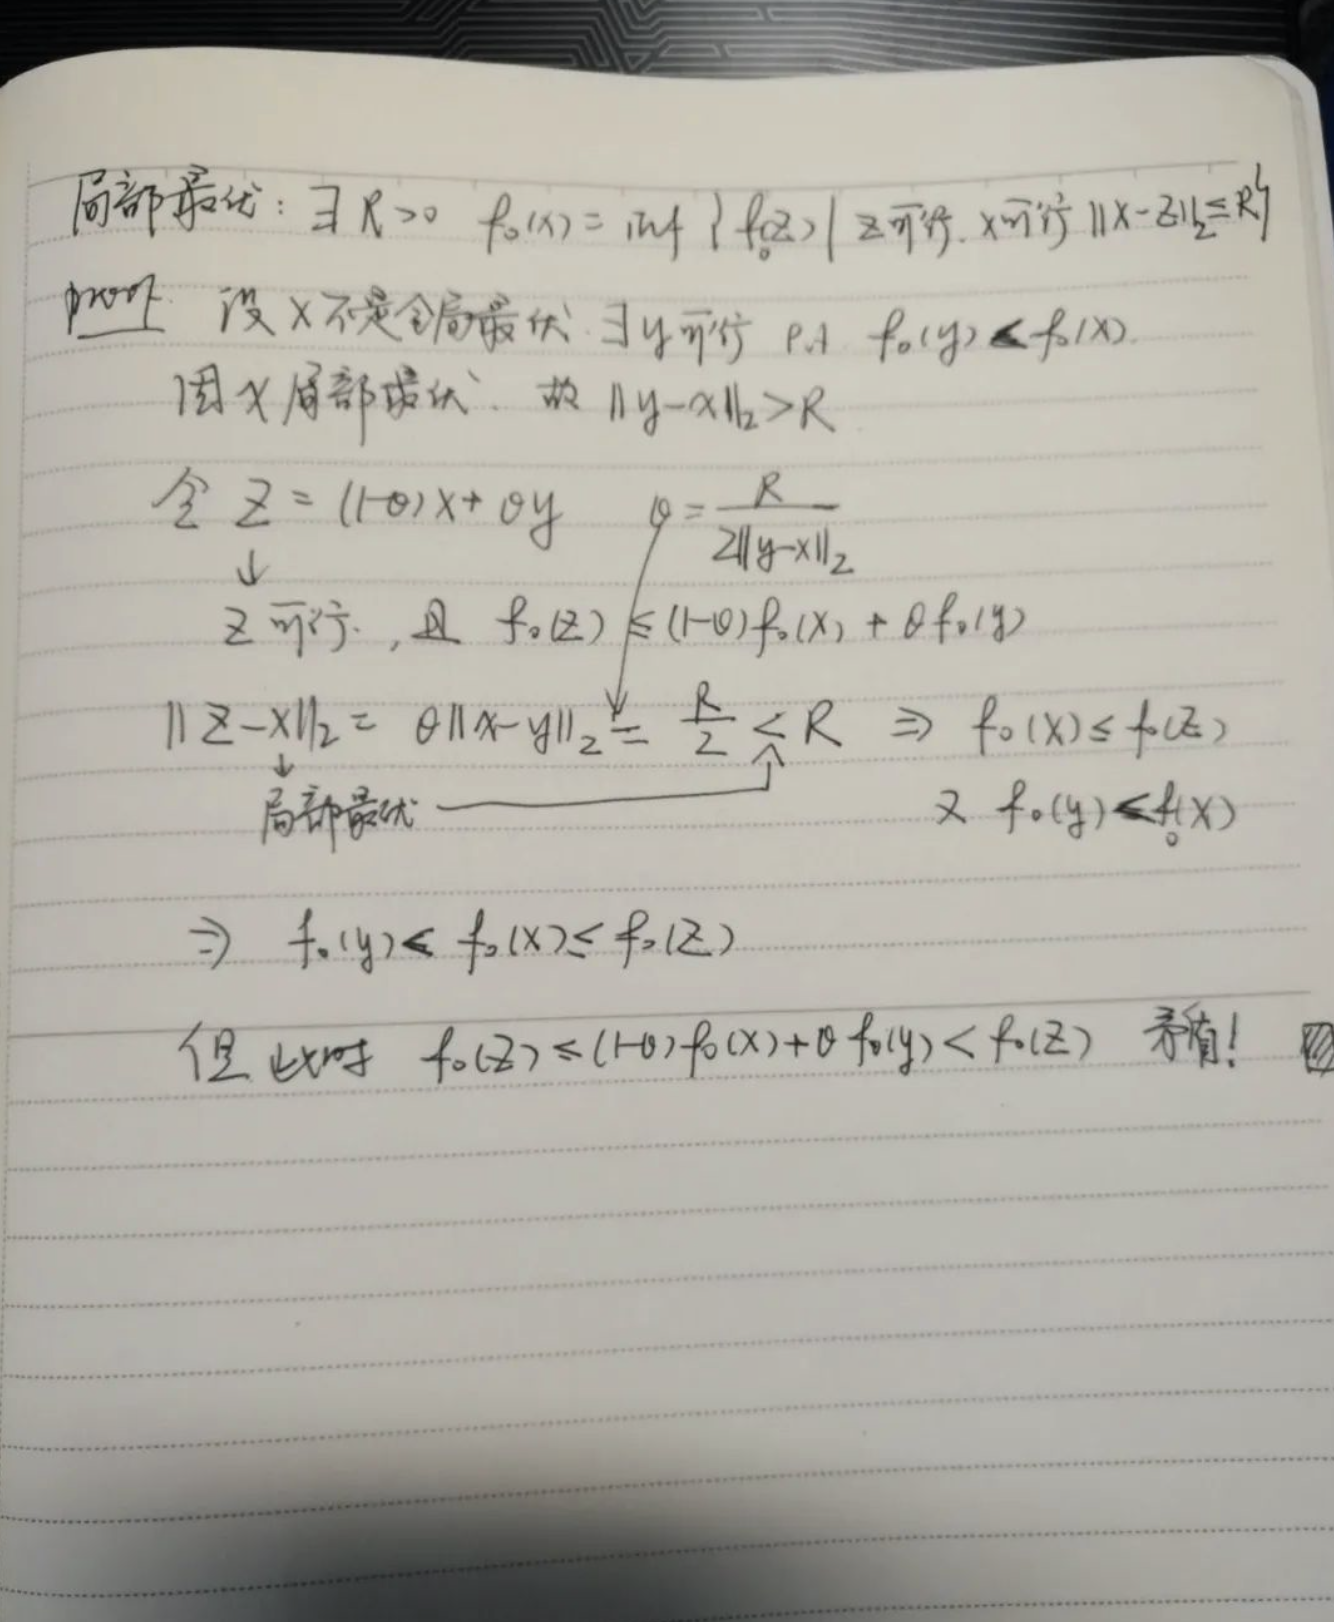 局部最优: ∃ R>0 f₀(x) = inf { f₀(z) | z可行. x可行 ||x-z||₂ ≤ R}
proof. 设 x 不是全局最优. ∃ y 可行 p.t f₀(y) < f₀(x).
因 x 局部最优. 故 ||y-x||₂ > R
令 z = (1-θ)x + θy θ = R / 2||y-x||₂
↓
z 可行. , 且 f₀(z) ≤ (1-θ)f₀(x) + θf₀(y)
||z-x||₂ = θ||x-y||₂ = R/2 < R ⇒ f₀(x) ≤ f₀(z)
↓
局部最优 又 f₀(y) < f₀(x)
⇒ f₀(y) < f₀(x) ≤ f₀(z)
但此时 f₀(z) ≤ (1-θ)f₀(x) + θf₀(y) < f₀(z) 矛盾!